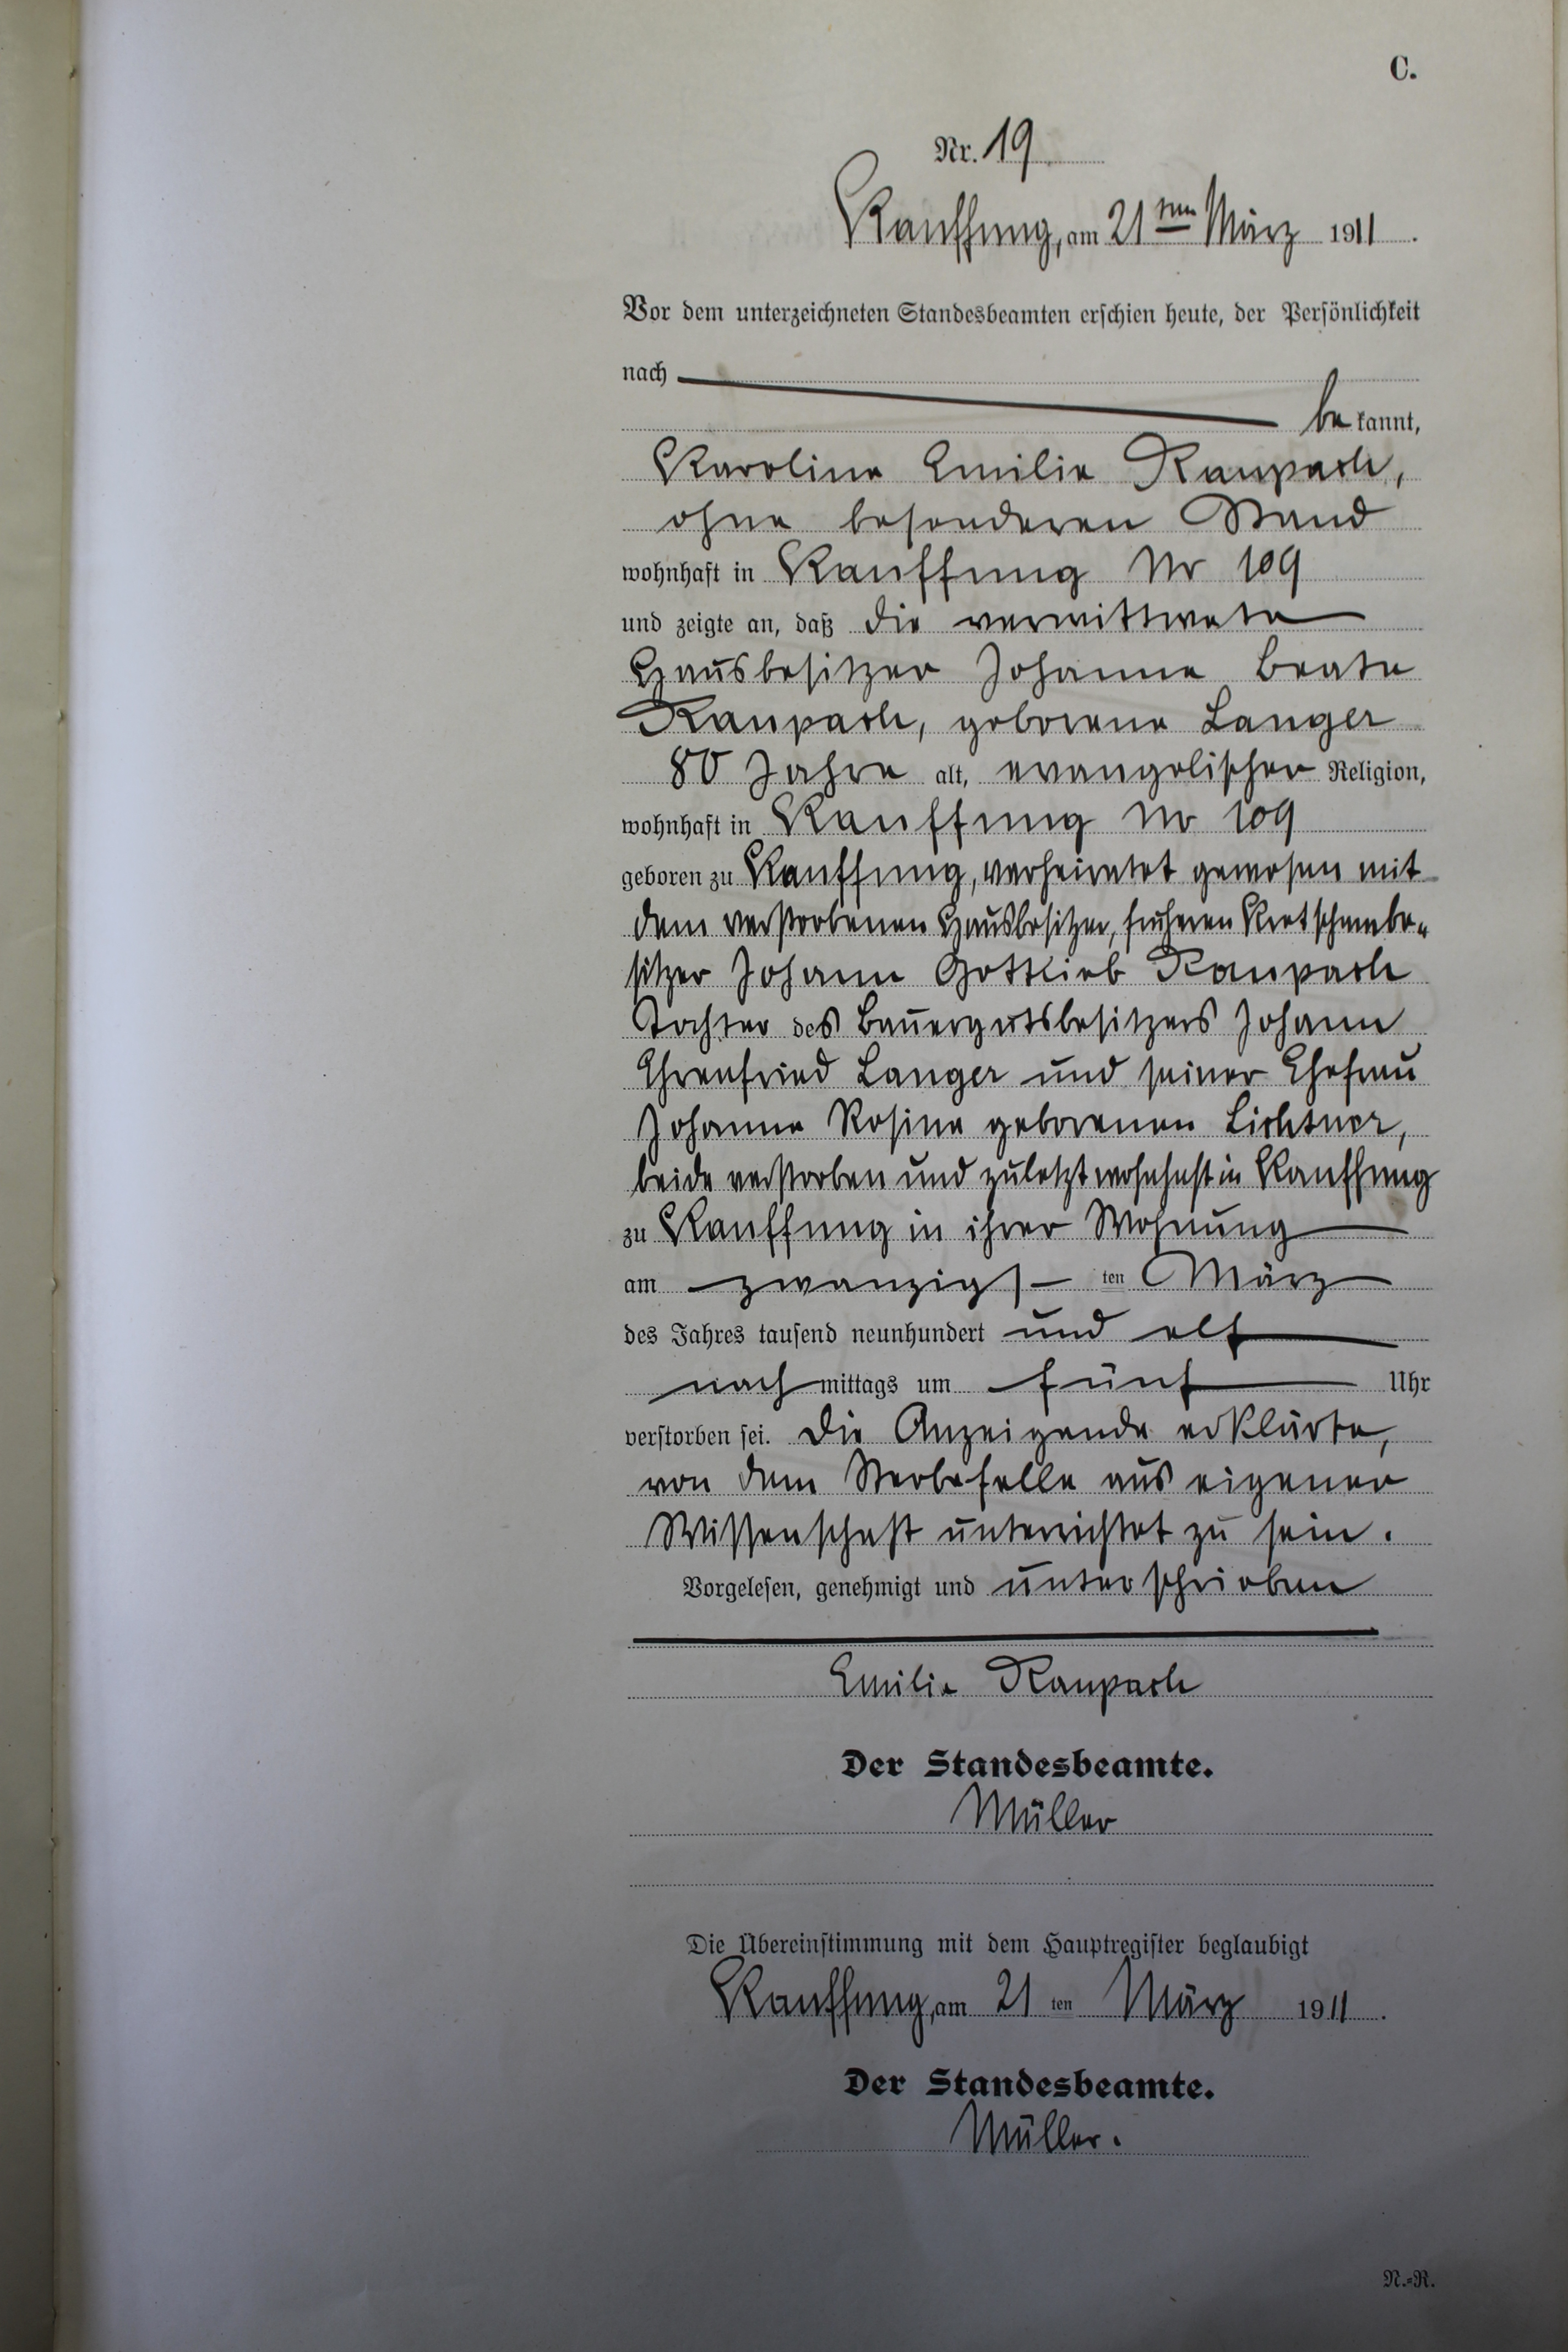 C.
Nr. 19
Kauffung, am 21ten März 1911.
Vor dem unterzeichneten Standesbeamten erschien heute, der Persönlichkeit
nach
be kannt,
Karoline Emilie Raupach,
ohne besonderen Stand
wohnhaft in Kauffung Nr 109
und zeigte an, daß die verwittwete
Hausbesitzer Johanne Beate
Raupach, geborene Langer
80 Jahre alt, evangelischer Religion,
wohnhaft in Kauffung Nr 109
geboren zu Kauffung, verheiratet gewesen mit
dem verstorbenen Hausbesitzer, früheren Kretschambe-
sitzer Johann Gottlieb Raupach
Tochter des Bauergutsbesitzers Johann
Ehrenfried Langer und seiner Ehefrau
Johanne Rosine geborenen Lichtner,
beide verstorben und zuletzt wohnhaft in Kauffung
zu Kauffung in ihrer Wohnung
am zwanzigs ten März
des Jahres tausend neunhundert und elf
nach mittags um fünf Uhr
verstorben sei. Die Anzeigende erklärte,
von dem Sterbefalle aus eigener
Wissenschaft unterrichtet zu sein.
Vorgelesen, genehmigt und unterschrieben
Emilie Raupach
Der Standesbeamte.
Müller
Die Übereinstimmung mit dem Hauptregister beglaubigt
Kauffung, am 21 ten März 1911.
Der Standesbeamte.
Müller.
N.-R.